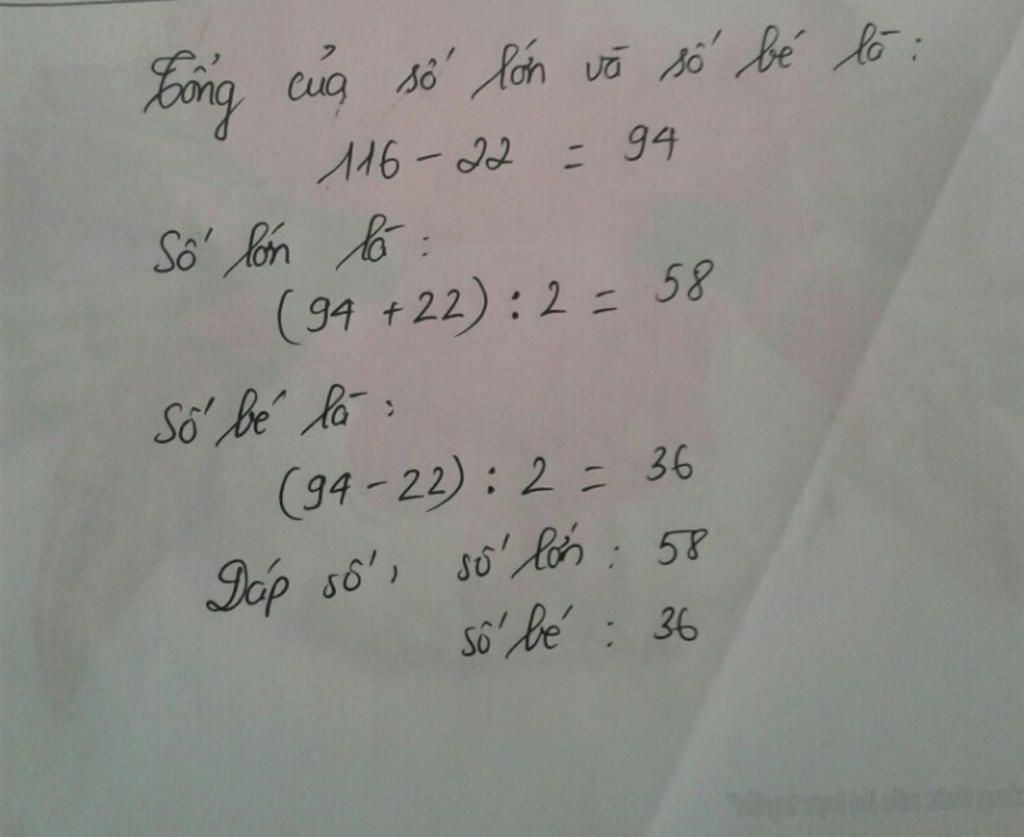 Tổng của số lớn và số bé là:
116 - 22 = 94
Số lớn là:
(94 + 22) : 2 = 58
Số bé là:
(94 - 22) : 2 = 36
Đáp số, số lớn : 58
số bé : 36